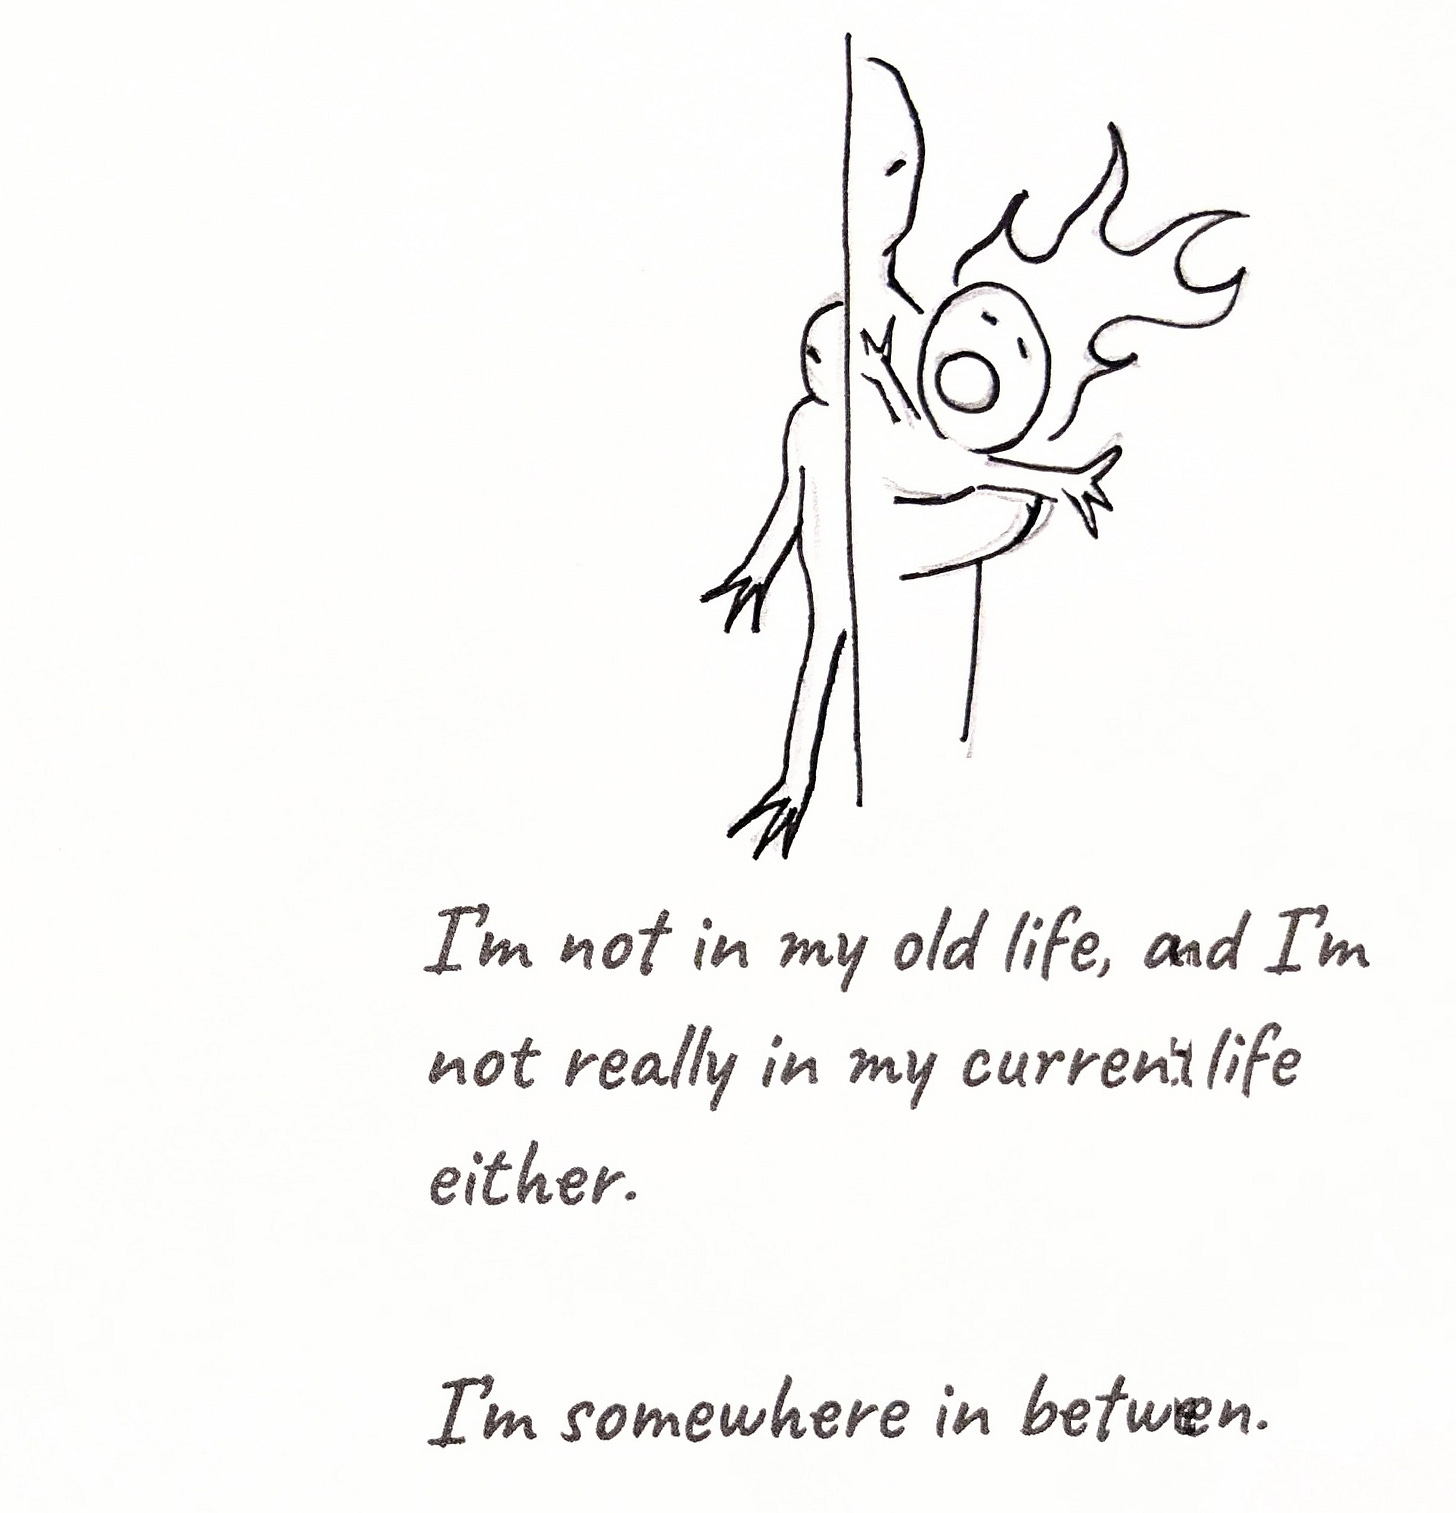 I'm not in my old life, and I'm
not really in my current life
either.
I'm somewhere in between.